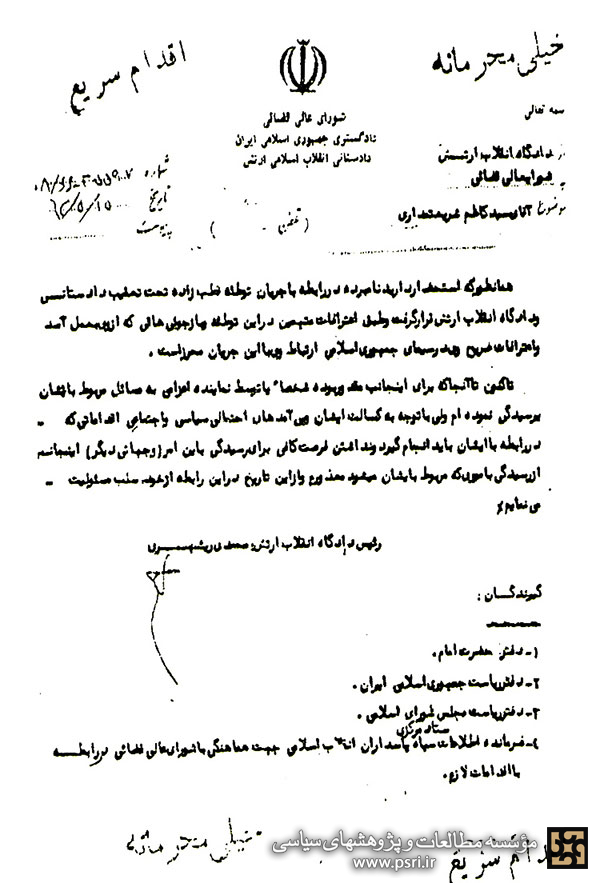 خیلی محرمانه
اقدام سریع
بسمه تعالی
شورای عالی قضائی
دادگستری جمهوری اسلامی ایران
دادستانی انقلاب اسلامی ارتش
از دادگاه انقلاب ارتش
به شورایعالی قضائی
موضوع آقای سید کاظم شریعتمداری
شماره
تاریخ
پیوست
همانطور که استحضار دارید نامبرده در رابطه با جریان توطئه قطب زاده تحت تعقیب دادستانی
و دادگاه انقلاب ارتش قرار گرفت و طبق اعترافات متهمین در این توطئه و بازجوئی هائی که از وی بعمل آمد
و اعترافات صریح وی در سیمای جمهوری اسلامی ارتباط وی با این جریان محرز است .
تاکنون تا آنجا که برای اینجانب مقدور بوده شخصاً یا توسط نماینده اعزامی به مسائل مربوط بایشان
رسیدگی نموده ام ولی با توجه به کسالت ایشان و پی آمدهای احتمالی سیاسی و اجتماعی اقداماتی که
در رابطه با ایشان باید انجام گیرد و نداشتن فرصت کافی برای رسیدگی باین امر (و جهاتی دیگر) اینجانب
از رسیدگی باموری که مربوط بایشان میشود معذورم و از این تاریخ در این رابطه از خود سلب مسئولیت
می نمایم
رئیس دادگاه انقلاب ارتش محمدی ریشهری
گیرندگان :
۱- دفتر حضرت امام.
۲- دفتر ریاست جمهوری اسلامی ایران .
۳- دفتر ریاست مجلس شورای اسلامی .
ستاد مرکزی
۴- فرمانده اطلاعات سپاه پاسداران انقلاب اسلامی جهت هماهنگی با شورای عالی قضائی در رابطه
با اقدامات لازم.
خیلی محرمانه
اقدام سریع
مؤسسه مطالعات و پژوهشهای سیاسی
www.psri.ir